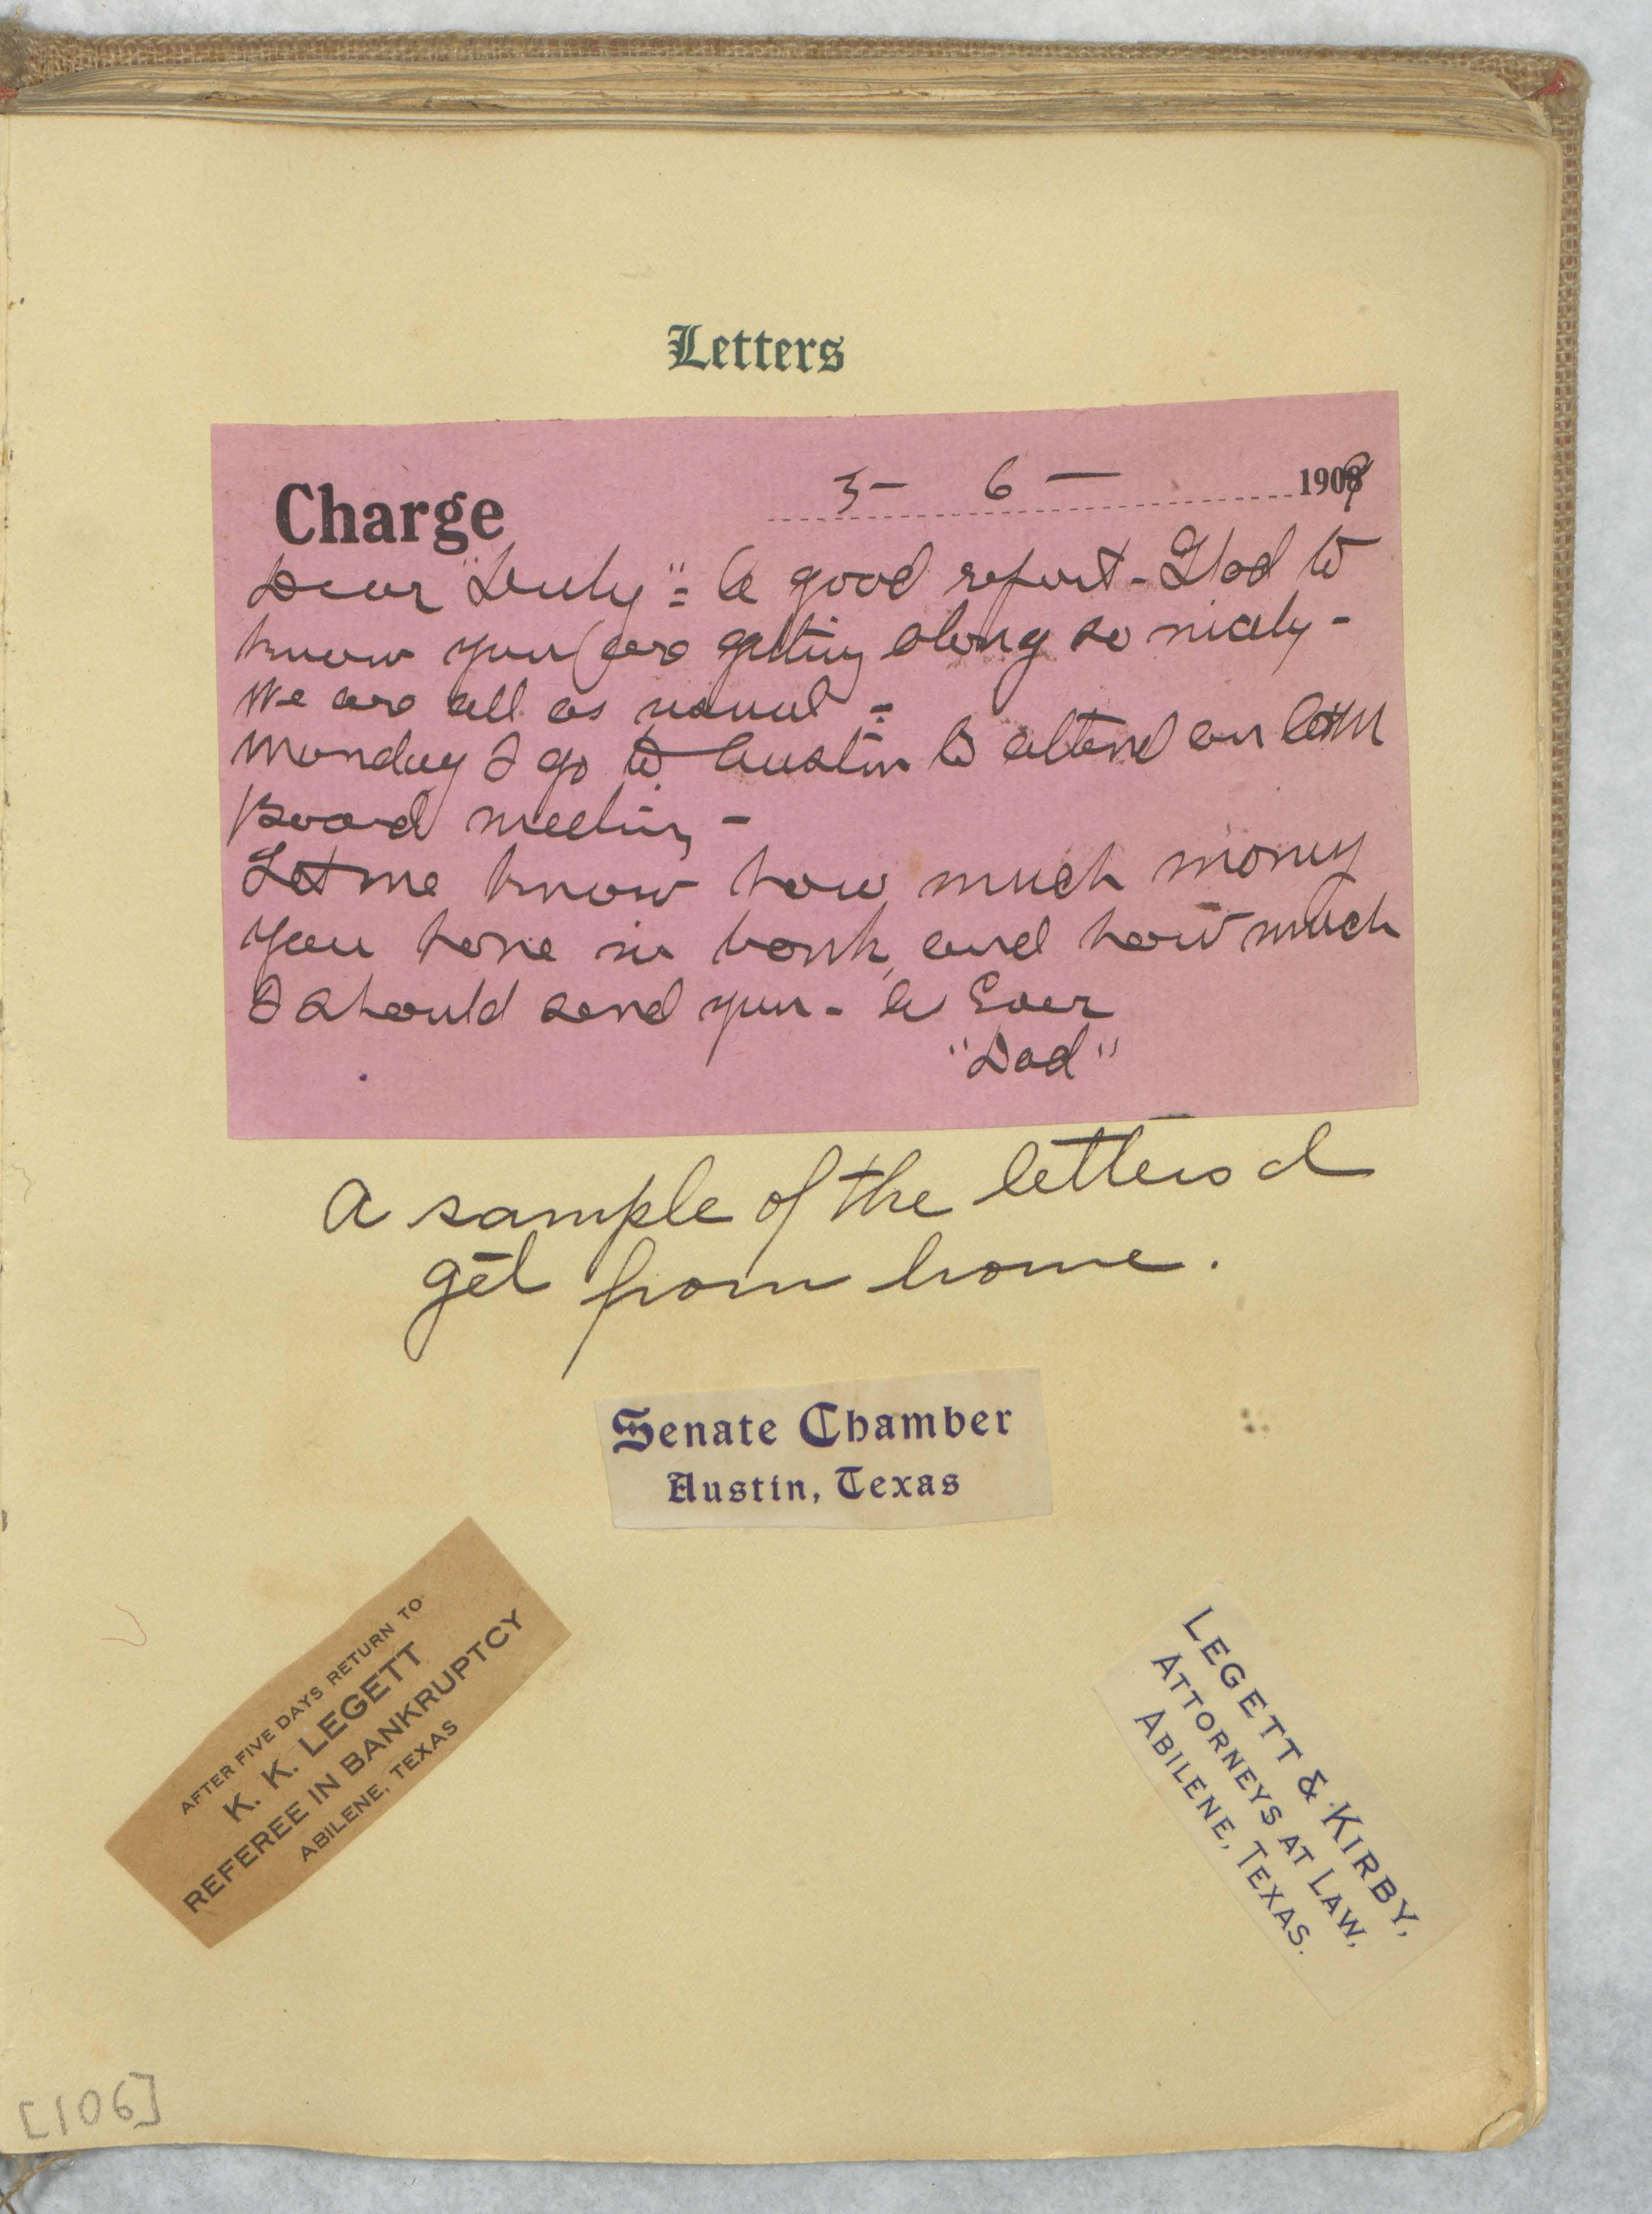 Letters
Charge 3- 6- 1909
Dear " " = A good report - Glad to
know you are getting along so nicely -
We are all as usual =
Monday I go to Austin to attend an A&M
Board meeting -
Let me know how much money
you have in bank, and how much
I should send you - as Ever
"Dad"
A sample of the letters I
get from home.
Senate Chamber
Austin, Texas
AFTER FIVE DAYS RETURN TO
K. K. LEGETT
REFEREE IN BANKRUPTCY
ABILENE, TEXAS
LEGETT & KIRBY,
ATTORNEYS AT LAW,
ABILENE, TEXAS.
[106]